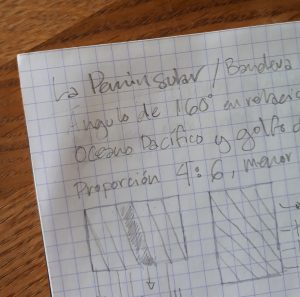 La Peninsular / Bandera
Ángulo de 160° en relació
Océano Pacífico y golfo d
Proporción 4:6, menor